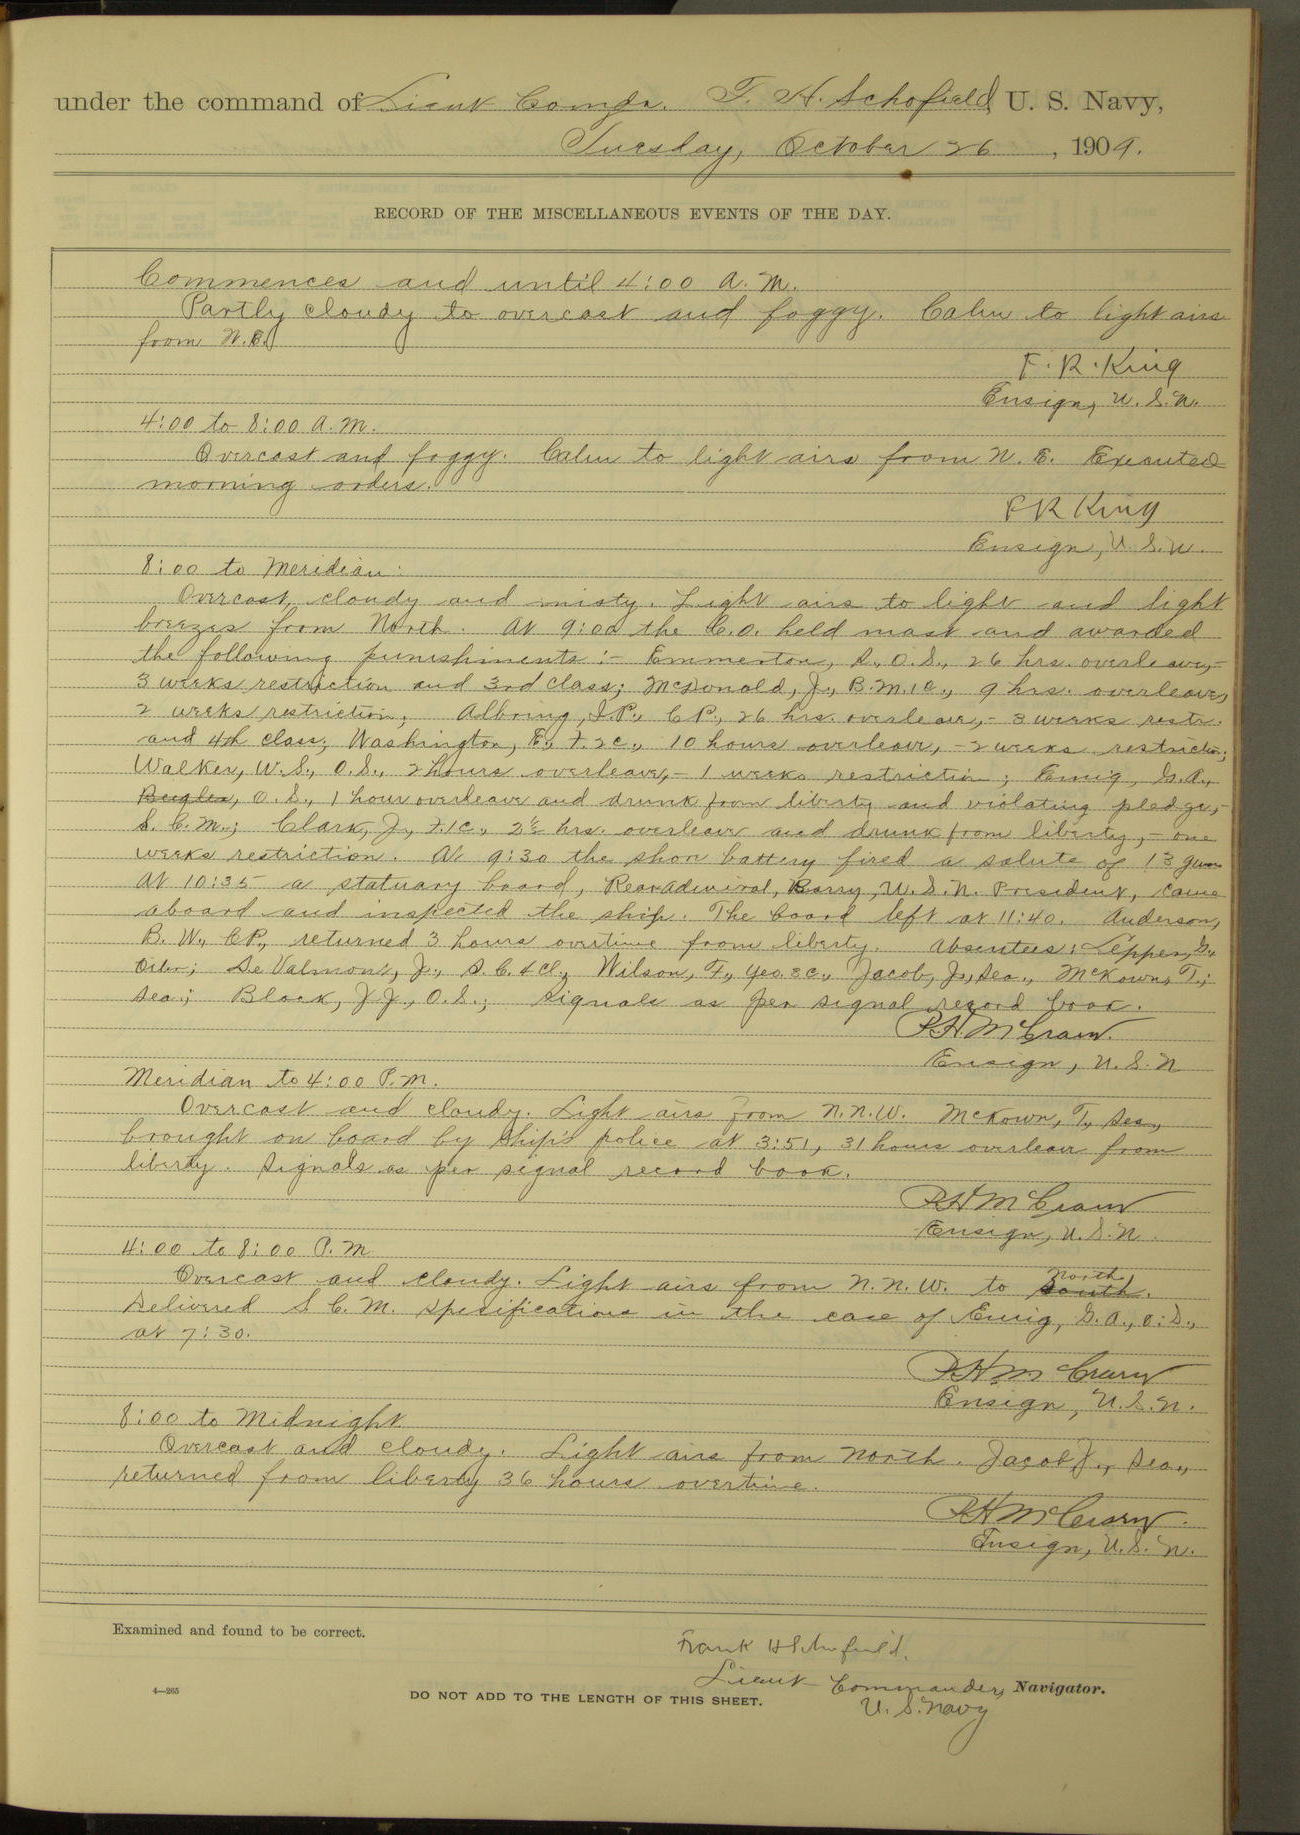 under the command of Lieut Comdr. F. H. Schofield, U. S. Navy,
Tuesday, October 26, 1909.
RECORD OF THE MISCELLANEOUS EVENTS OF THE DAY.
Commences and until 4:00 A.M.
Partly cloudy to overcast and foggy. Calm to light airs
from N.E.
F. R. King
Ensign, U.S.N.
4:00 to 8:00 A.M.
Overcast and foggy. Calm to light airs from N.E. Executed
morning orders.
F R King
Ensign, U.S.N.
8:00 to Meridian:
Overcast, cloudy and misty. Light airs to light and light
breezes from North. At 9:00 the C.O. held mast and awarded
the following punishments:- Emmerton, S., O.S., 26 hrs. overleave,-
3 weeks restriction and 3rd class; McDonald, J., B.M.1c., 9 hrs. overleave,
2 weeks restriction; Albring, I.P., C.P., 26 hrs. overleave,- 3 weeks restr.
and 4th class; Washington, E., F.2c., 10 hours overleave,- 2 weeks restriction;
Walker, W.S., O.S., 2 hours overleave,- 1 weeks restriction; Emig, G.A.,
Bugler, O.S., 1 hour overleave and drunk from liberty and violating pledge,-
S.C.M.; Clark, J., F.1c., 2½ hrs. overleave and drunk from liberty,- one
weeks restriction. At 9:30 the shore battery fired a salute of 13 guns
At 10:35 a statuary board, Rear Admiral, Barry, U.S.N. President, came
aboard and inspected the ship. The board left at 11:40. Anderson,
B.W., C.P., returned 3 hours overtime from liberty. Absentees: Lepper, G.,
Oiler; De Valmont, J., S.C.4Cl., Wilson, F., Yeo.3c., Jacob, J., Sea., McKown, T.,
Sea.; Black, J J., O.S.; Signals as per signal record book.
R.H. McCraw.
Ensign, U.S.N
Meridian to 4:00 P.M.
Overcast and cloudy. Light airs from N.N.W. McKown, T., Sea.,
brought on board by ship's police at 3:51, 31 hours overleave from
liberty. Signals as per signal record book.
R H McCraw
Ensign, U.S.N.
4:00 to 8:00 P.M
Overcast and cloudy. Light airs from N.N.W. to South North.
Delivered S.C.M. specifications in the case of Emig, G.A., O.S.,
at 7:30.
R H McCraw
Ensign, U.S.N.
8:00 to Midnight
Overcast and cloudy. Light airs from North. Jacob J., Sea.,
returned from liberty 36 hours overtime.
R H McCraw.
Ensign, U.S.N.
Examined and found to be correct.
Frank H Schofield.
Lieut Commander, Navigator.
U.S. Navy
4—265
DO NOT ADD TO THE LENGTH OF THIS SHEET.